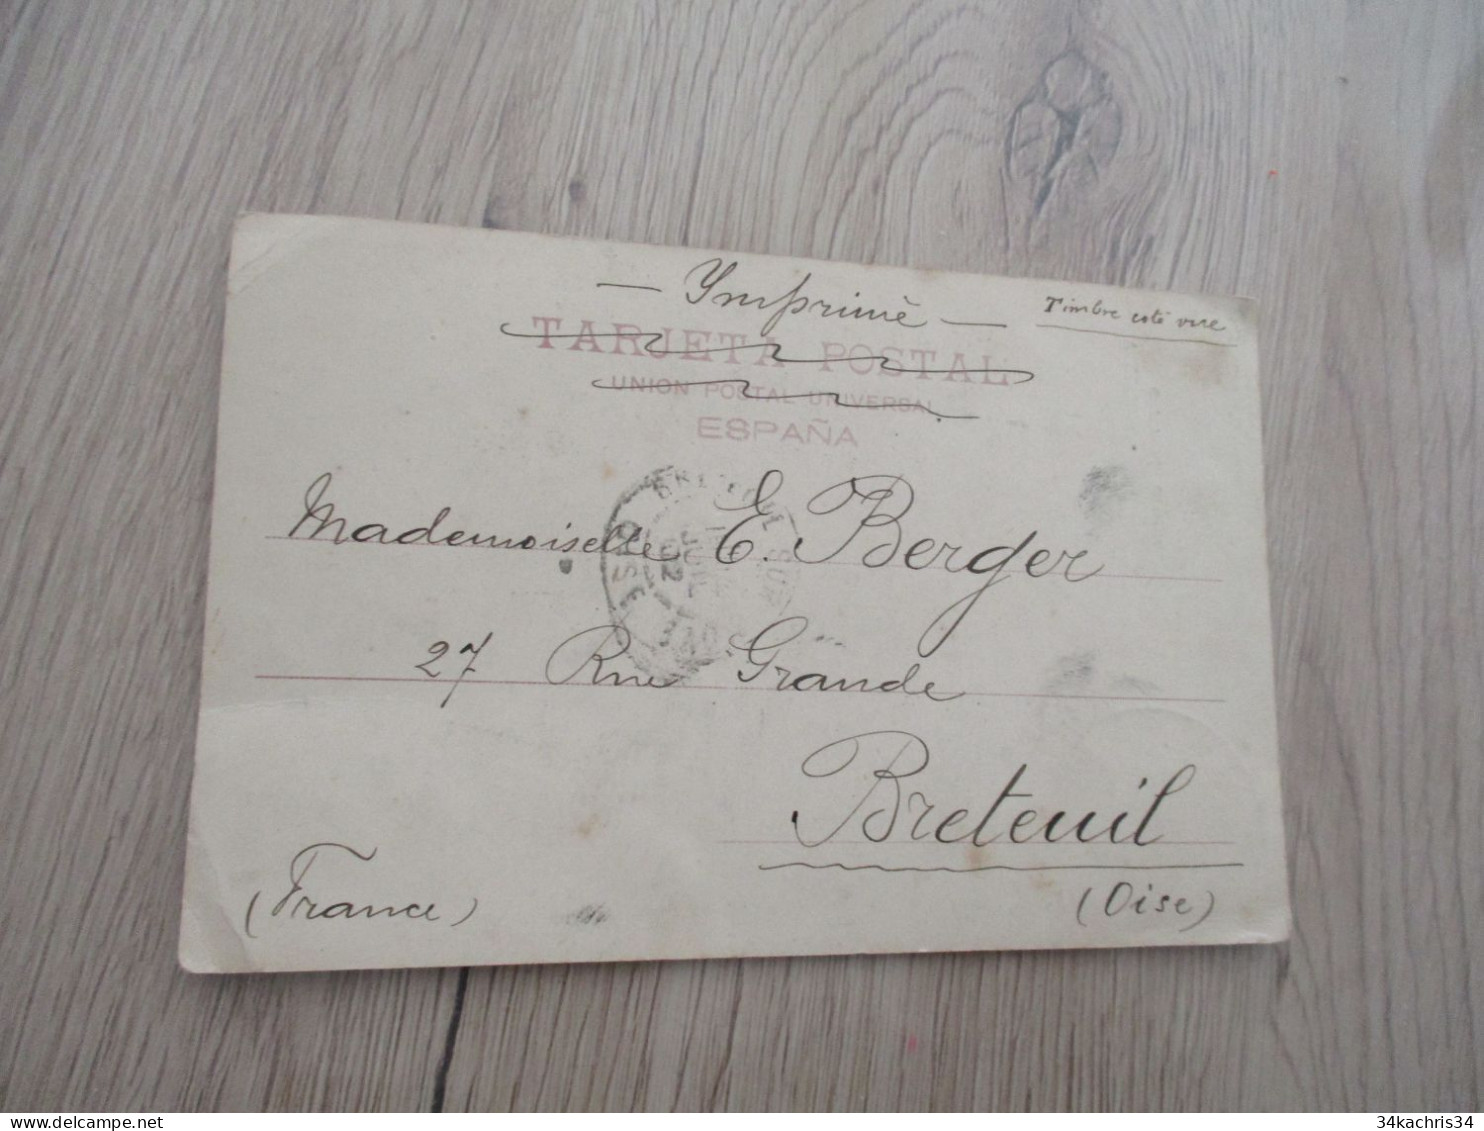 — Ymprimè —
Timbre coté vue
TARJETA POSTAL
UNION POSTAL UNIVERSAL
ESPAÑA
Mademoiselle E. Berger
27 Rue Grande
Breteuil
(France)
(Oise)
OISE
34kachris34
delcampe.net